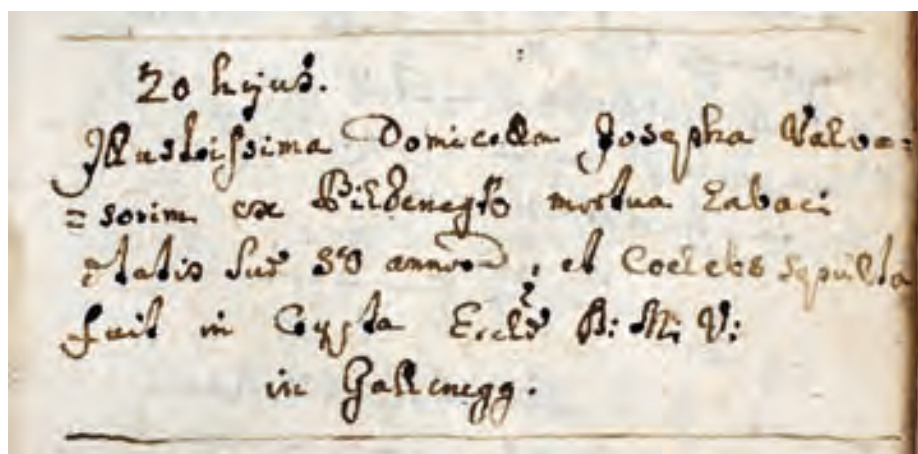 20 hujus.
Illustrissima Domicella Josepha Valva=
=sorin ex mortua Labaci
ætatis suæ 50 annorū, et Coelebs sepulta
fuit in Crypta Eccl̃æ B: M: V:
in Gallenegg.